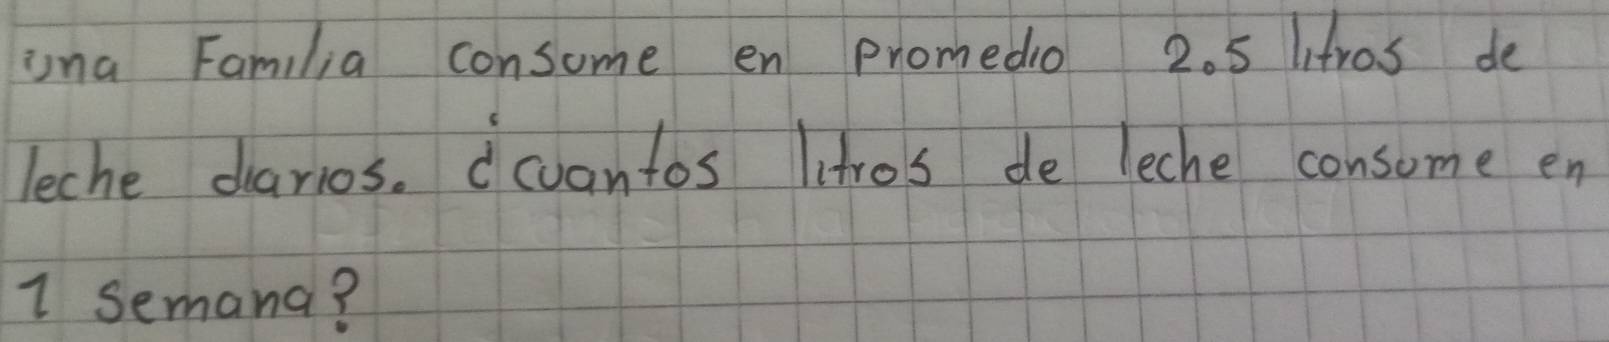 una Familia consume en promedio 2.5 litros de
leche diarios. ¿cuantos litros de leche consume en
1 semana?